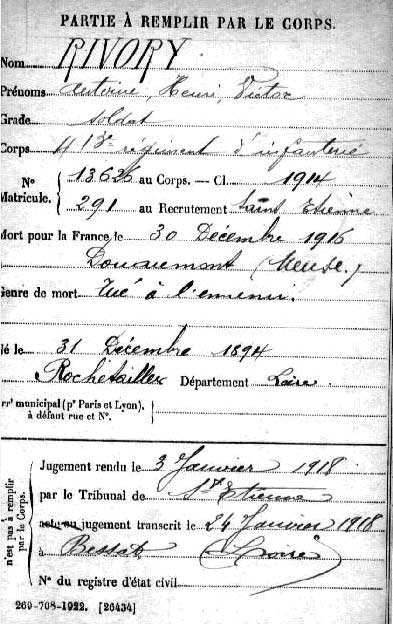 PARTIE À REMPLIR PAR LE CORPS.
Nom RIVORY
Prénoms Antoine, Henri, Victor
Grade soldat
Corps 413e régiment d'infanterie
N° Matricule. 13626 au Corps. — Cl. 1914
291 au Recrutement Saint Etienne
Mort pour la France le 30 Décembre 1916
Douaumont (Meuse.)
Genre de mort Tué à l'ennemi.
Né le 31 Décembre 1894
Rochetaillée Département Loire
Arrt municipal (pr Paris et Lyon), à défaut rue et N°.
n'est pas à remplir par le Corps.
Jugement rendu le 3 Janvier 1918
par le Tribunal de St Etienne
acte ou jugement transcrit le 24 Janvier 1918
à Bessat (Loire)
N° du registre d'état civil
260-708-1922. [26434]